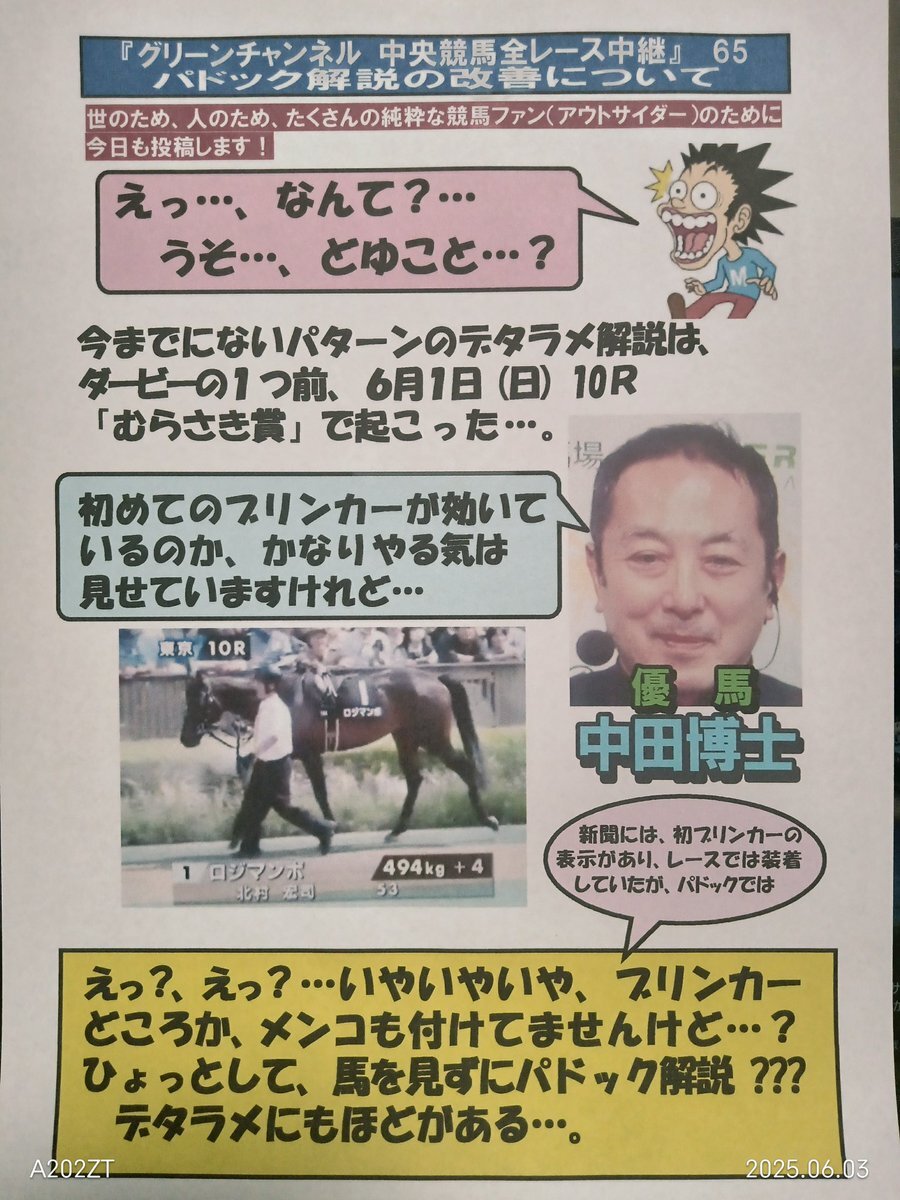 『グリーンチャンネル 中央競馬全レース中継』 65
パドック解説の改善について
世のため、人のため、たくさんの純粋な競馬ファン(アウトサイダー)のために
今日も投稿します！
えっ…、なんて？…
うそ…、どゆこと…？
M
今までにないパターンのデタラメ解説は、
ダービーの１つ前、6月1日(日) 10R
「むらさき賞」で起こった…。
初めてのブリンカーが効いて
いるのか、かなりやる気は
見せていますけれど…
場
優 馬
中田博士
東京 10R
1
ロジマンボ
1 ロジマンボ 494kg +4
北村 宏司 53
新聞には、初ブリンカーの
表示があり、レースでは装着
していたが、パドックでは
えっ？、えっ？…いやいやいや、ブリンカー
どころか、メンコも付けてませんけど…？
ひょっとして、馬を見ずにパドック解説 ???
デタラメにもほどがある…。
A202ZT
2025.06.03